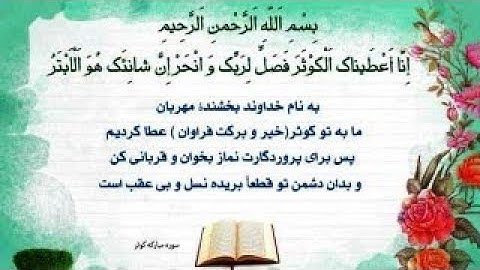 بِسْمِ اَللّهِ اَلرَّحْمنِ اَلرَّحِيمِ
إِنّا اَعْطَیناکَ اَلْکَوْثَرَ فَصَلِّ لِرَبِّکَ وَ انْحَرْ إِنَّ شانِئَکَ هُوَ اَلْأَبْتَرُ
به نام خداوند بخشنده مهربان
ما به تو کوثر(خیر و برکت فراوان ) عطا کردیم
پس برای پروردگارت نماز بخوان و قربانی کن
و بدان دشمن تو قطعاً بریده نسل و بی عقب است
سوره مبارکه کوثر